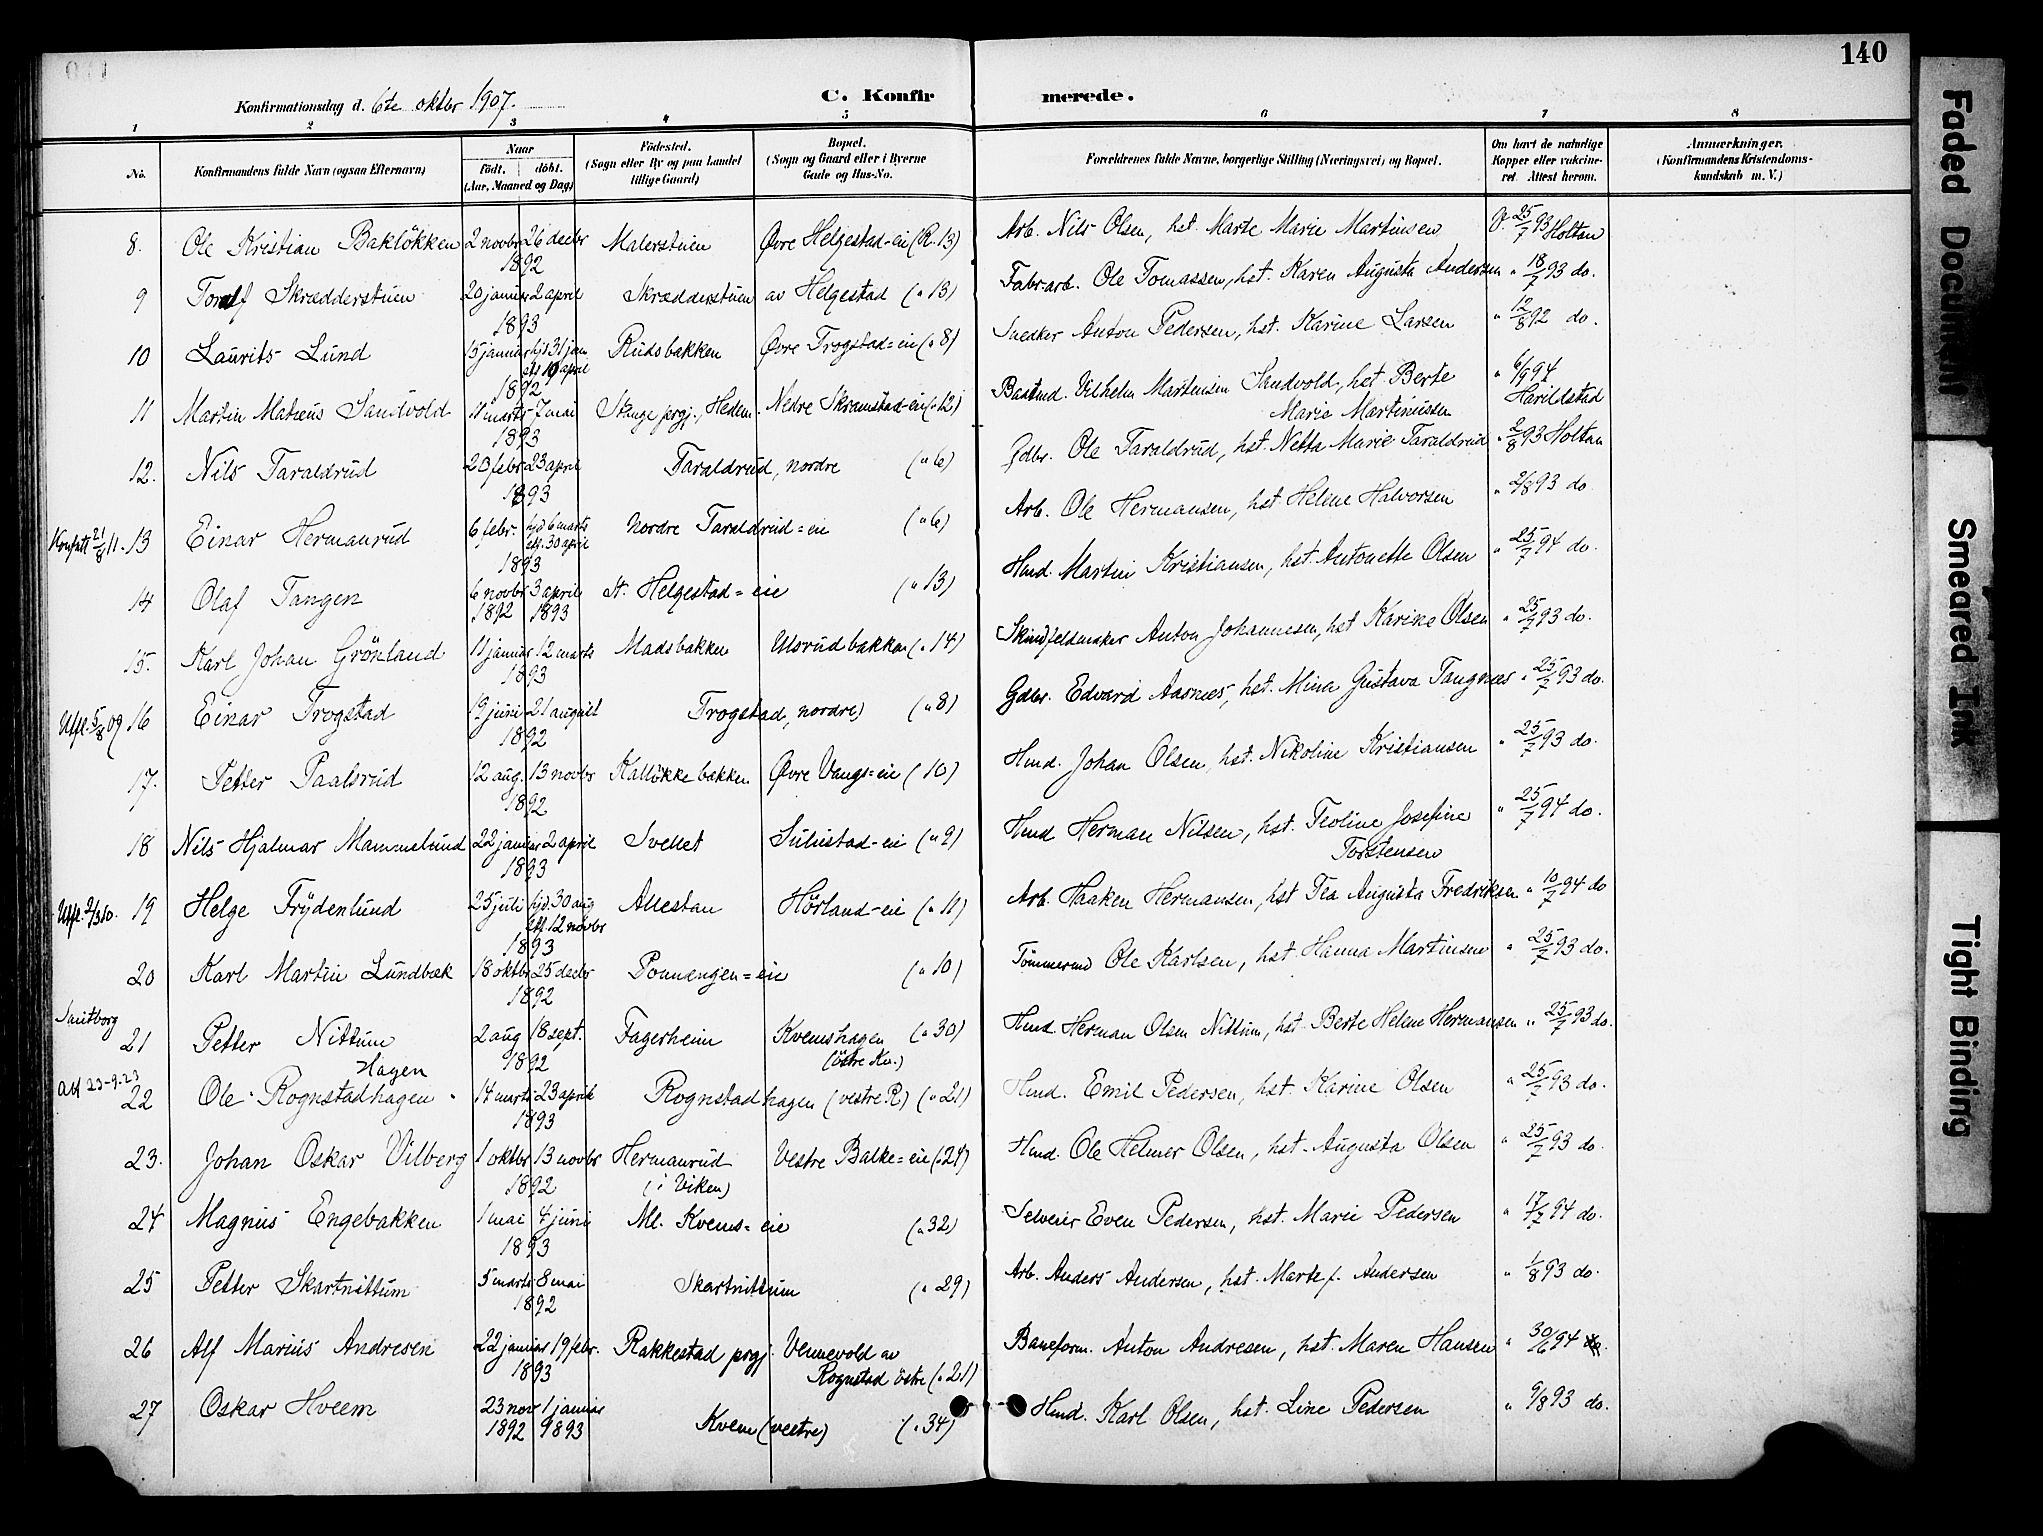 140
Konfirmationsdag d. 6te oktbr 1907.
C. Konfirmerede.
1 2 3 4 5 6 7 8
No. Konfirmandens fulde Navn (ogsaa Efternavn) Naar født. døbt. (Aar, Maaned og Dag) Fødested. (Sogn eller By og paa Landet tillige Gaard) Bopæl. (Sogn og Gaard eller i Byerne Gade og Hus-No. Forældrenes fulde Navne, borgerlige Stilling (Næringsvei) og Bopæl. Om havt de naturlige Kopper eller vaccineret. Attest herom. Anmærkninger. (Konfirmandens Kristendomskundskab m. V.)
8. Ole Kristian Bakløkken 2 novbr 26 decbr 1892 Malerstuen Øvre Helgestad-eie (R. 13) Arb. Nils Olsen, hst. Marte Marie Martinsen V. 25/7 93 Holtan
9 Toralf Skrædderstuen 20 januar 2 april 1893 Skrædderstuen av Helgestad (" 13) Fabr.arb. Ole Tomassen, hst. Karen Augusta Andersen " 18/7 93 do.
10 Laurits Lund 15 januar hjd 31 jan. 10 april 1892 Rudsbakken Øvre Trogstad=eie (" 8) Snedker Anton Pedersen, hst. Karine Larsen " 12/8 92 do.
11 Martin Mateus Sandvold 11 marts 7 mai 1893 Stange prgj., Hedem. Nedre Skramstad-eie (" 12) Baatmd. Vilhelm Martinsen Sandvold, hst. Berte Marie Martinussen " 6/9 94 Harildstad
12. Nils Taraldrud 20 febr 23 april 1893 Taraldrud, nordre (" 6) Gdbr. Ole Taraldrud, hst. Netta Marie Taraldrud " 2/8 93 Holtan
Konfatt 21/8 11. 13 Einar Hermanrud 6 febr. hjd 6 marts 30 april 1893 Nordre Taraldrud=eie (" 6) Arb. Ole Hermansen, hst Helene Halvorsen " 2/8 93 do
14 Olaf Tangen 6 novbr 1892 3 april 1893 St. Helgestad=eie (" 13) Hmd. Martin Kristiansen, hst. Antonette Olsen " 25/7 94 do.
15. Karl Johan Grønland 11 januar 12 marts 1893 Madsbakken Ulsrudbakken (" 14) (Skind)feldmaker Anton Johannesen, hst Karine Olsen " 25/7 93 do.
Utfl. 5/8 09 16 Einar Trogstad 19 juni 21 august 1892 Trogstad, nordre) (" 8) Gdbr. Edvard Aasnes, hst. Mina Gustava Tangnæs " 25/7 93 do.
17. Petter Paalsrud 12 aug. 13 novbr 1892 Kalløkkebakken Øvre Vangs=eie ( 10) Hmd. Johan Olsen, hst. Nikoline Kristiansen " 25/7 93 do.
18 Nils Hjalmar Mammelund 22 januar 2 april 1893 Svellet Sulustad-eie (" 9) Hmd Herman Nilsen, hst. Teoline Josefine Torstensen " 25/7 94 do.
Utfl. 2/3 10. 19 Helge Frydenlund 25 juli hjd. 30 aug 12 novbr 1893 Allestau Hørland-eie (" 11) Arb. Haaken Hermansen, hst Tea Augusta Fredriksen " 10/7 94 do
20 Karl Martin Lundbæk 18 oktbr 25 decbr 1892 Ponnengen=eie (" 10) Tømmermd Ole Karlsen, hst Hanna Martinsen " 25/7 93 do.
21 Petter Nittum 2 aug 18 sept. 1892 Fagerheim Kvemshagen (østre Kv.) (" 30) Hmd. Herman Olsen Nittum, hst. Berte Helene Hermansen " 25/7 93 do.
Att 23-9-23 22 Ole Rognstadhagen Hagen 14 marts 23 april 1893 Rognstadhagen (vestre R) (" 21) Hmd. Emil Pedersen, hst. Karine Olsen " 25/7 93 do.
23. Johan Oskar Vilberg 1 oktbr 13 novbr 1892 Hermanrud (i Viken) Vestre Balke=eie (" 24) Hmd. Ole Helmer Olsen, hst. Augusta Olsen " 25/7 93 do.
24 Magnus Engebakken 1 mai 4 juni 1893 Ml. Kvems=eie (" 32) Selveier Even Pedersen, hst. Marie Pedersen " 17/7 94 do.
25 Petter Skartnittum 5 marts 8 mai 1892 Skartnittum (" 29) Arb. Anders Andersen, hst. Marte f. Andersen " 1/8 93 do.
26 Alf Marius Andresen 22 januar 19 febr. 1893 Rakkestad prgj. Vennevold av Rognstad østre (" 21) Baneform. Anton Andresen, hst. Maren Hansen " 30/6 94 do.
27 Oskar Hveem 23 nov 1892 1 januar 1893 Kvem (vestre) (" 34) Hmd. Karl Olsen, hst. Line Pedersen " 9/8 93 do.
Faded Document
Smeared Ink
Tight Binding